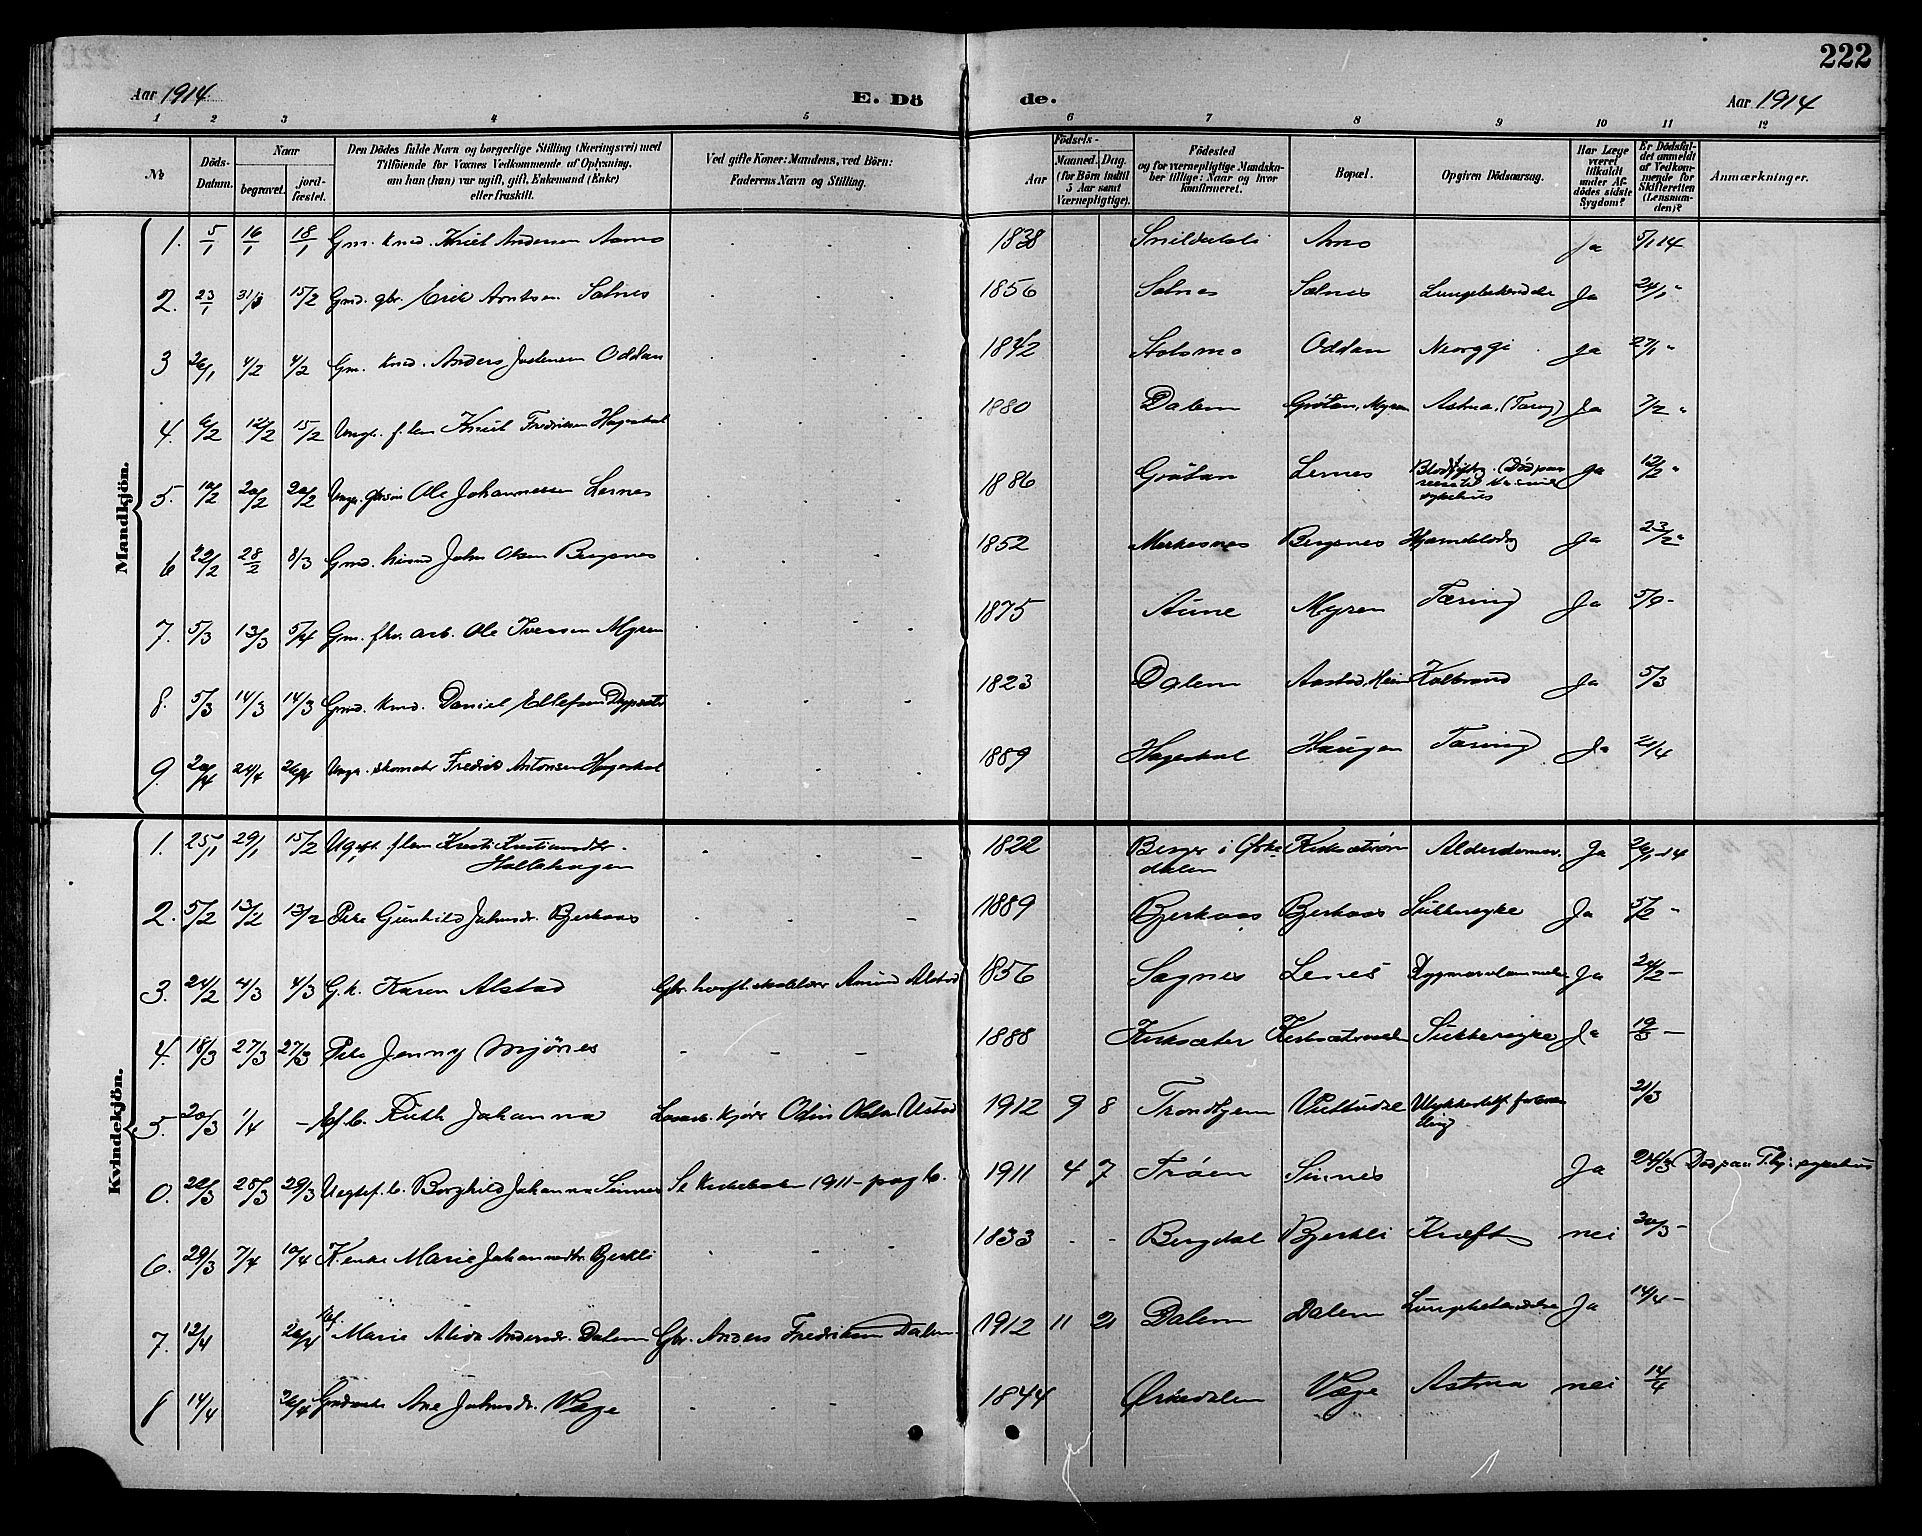 222
Aar 1914.
E. Dö
de.
Aar 1914
1 2 3 4 5 6 7 8 9 10 11 12
No
Döds-Datum.
Naar
begravet.
jordfæstet.
Den Dödes fulde Navn og borgerlige Stilling (Næringsvei) med
Tilföiende for Voxnes Vedkommende af Oplysning,
om han (hun) var ugift, gift, Enkemand (Enke)
eller fraskilt.
Ved gifte Koner: Mandens, ved Börn:
Faderens Navn og Stilling.
Födsels-
Aar
Maaned. Dag.
(for Börn indtil
5 Aar samt
Værnepligtige).
Födested
og for værnepligtige Mandska-
ber tillige: Naar og hvor
konfirmeret.
Bopæl.
Opgiven Dödsaarsag.
Har Læge
været
tilkaldt
under Af-
dödes sidste
Sygdom?
Er Dödsfal-
det anmeldt
af Vedkom-
mende for
Skifteretten
(Lensman-
den)?
Anmærkninger.
Mandkjön.
1. 5/1 16/1 18/1 Gm. Knud Andersen Aamo 1838 Snildalsli Amo Ja 5/1 14
2. 23/1 31/1 15/2 Gmd. gbr. Erik Arntsen Sølnes 1856 Sølnes Sølnes Lungebetændelse Ja 24/1 "
3 26/1 4/2 4/2 Gm. Kmd. Anders Oddan 1842 Stolsmo Oddan Ja 27/1 "
4. 6/2 12/2 15/2 Ungk. f. lem Knut Fredriksen Hageskal 1880 Dalem Grötan, Myren Astma, (Tæring) Ja 7/2 "
5. 10/2 20/2 20/2 Ungk. Ole Johannessen Lernes 1886 Grötan Lernes Ja 12/2 "
6 22/2 28/2 8/3 Gmd. John Olsen Bergsnes 1852 Bergsnes Ja 23/2 "
7. 5/3 13/3 5/4 Gm. fhv. arb. Ole Iversen Myren 1875 Aune Myren Tæring Ja 5/9 -
8. 5/3 14/3 14/3 Gmd. Kmd. Daniel Ellefsen 1823 Dalem Aastad, Hein Koldbrand Ja 5/3
9. 20/4 24/4 26/4 Ungk. skomaker Fredrik Antonsen Hageskal 1889 Hageskal Haugen Tæring Ja 21/4
Kvindekjön.
1. 25/1 29/1 15/2 Ugift f. lem Kirsti Kristiansdtr. 1822 Berger i Orke- Alderdomssv. Ja 26/1 - 14
Hallehaugen dalen
2. 5/2 13/2 13/2 Pike Gunhild Johnsdr. Bjerkaas 1889 Bjerkaas Bjerkaas Sukkersyke Ja 5/2 -
3. 24/2 4/3 4/3 G. k. Karen Alstad Gbr. Amund Alstad 1856 Sagnes Lenes Ja 24/2 -
4. 18/3 27/3 27/3 Pike Jenny Mjönes 1888 Kirksæter Sukkersyke Ja 19/3 -
5. 20/3 1/4 - Ruth Johanna Odin Olsen Ustad 1912 9 8 Trondhjem 21/3
0. 22/3 28/3 29/3 Uegtef. b. Borghild Johanna Sinnes Se Kirkeboken 1911 - pag 6. 1911 4 7 Tröen Sinnes Ja 24/3 Död paa T.hj. sykehus
6. 29/3 7/4 10/4 K. enke Marie Johannesdtr. Bjerkli 1833 Bergdal Bjerkli Kræft nei 30/3 -
7. 12/4 26/4 Marie Alida Andersdr. Dalem Gbr. Anders Fredriksen Dalem 1912 11 21 Dalem Dalem Lungebetændelse Ja 14/4 -
8 14/4 26/4 Ane Johnsdr. Vaage 1844 Orkedalen Vaage Astma nei 14/4